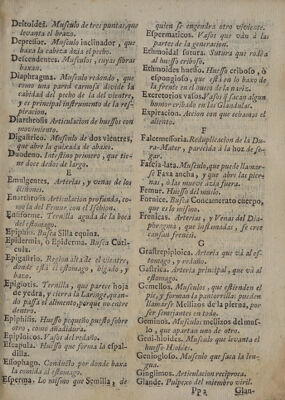 Deltoides. Musculo de tres puntas, que
levanta el brazo.
Depressor. Musculo inclinador, que
baxa la cabeza ázia
Descendentes. Musculos, cuyas fibras
baxan.
Diaphragma. Musculo redondo, que
como una pared carnosa divide la
cabidad del pecho de la del vientre,
y es principal instrumento de la res-
piracion.
Diarthrosis Articulacion de huessos con
movimiento.
Digastrico. Musculo de dos vientres,
que abre la quixada de abaxo.
Duodeno. Intestino primero, que tie-
ne doce dedos de largo.
E
Emulgentes. Arterias, y venas de los
Riñones.
Enarthrosis Articulacion profunda, co-
mo la del Femur con el Ischion.
Ensiforme. Ternilla aguda de la boca
del estomago.
Ephipio. Busca Silla equina.
Epidermis, ò Epiderma. Busca Cuti-
cula.
Epigastrio. Region alta de el vientre,
donde està el estomago, higado, y
bazo.
Epiglotis. Ternilla, que parece hoja
de yedra, y cierra la Laringe, quan-
do passa el alimento, porque no entre
dentro.
Epiphisis. Huesso pequeño puesto sobre
otro, como añadidura.
Epiploicos. Vasos del redaño.
Escapula. Huesso que forma la espal-
dilla.
Essophago. Conducto por donde baxa
la comida al estomago.
Esperma. Lo mismo que Semilla, de
quien se engendra otro viviente.
Espermaticos. Vasos que ván á las
partes de la generacion.
Ethmoidal sutura. Sutura que rodéa
al huesso criboso.
Ethmoides huesso. Huesso criboso, ò
esponjioso, que está en lo baxo de
la frente en el hueco de la nariz.
Excretorios vasos. Vasos q̃ sacan algun
humor cribado en las Glandulas.
Expiracion. Accion con que echamos el
aliento.
F
Falcemessoria. Reduplicacion de la Du-
ra-Mater, parecida á la hoz de se-
gar.
Fascia-lata. Musculo, que puede llamar-
se Faxa ancha, y que abre las pier-
nas, ò las mueve ázia fuera.
Femur. Huesso del muslo.
Fornice. Busca Concamerato cuerpo,
que es lo mismo.
Frenicas. Arterias, y Venas del Dia-
phragma, que inflamadas, se cree
causan frenesì.
G
Gastrepiploica. Arteria que và al es-
tomago, y redaño.
Gastrica. Arteria principal, que và al
estomago.
Gemellos. Musculos, que estienden el
pie, y forman la pantorrilla pueden
llamarse Mellizos de la pierna, por
ser semejantes en todo.
Geminos. Musculos mellizos del mus-
lo, que apartan uno de otro.
Geni-hioides. Musculo que levanta el
huesso Hoides.
Geniogloso. Musculo que saca la len-
gua.
Ginglimos. Articulacion reciproca.
Glande. Pulpexo del miembro viril.
Pp2
Glan-